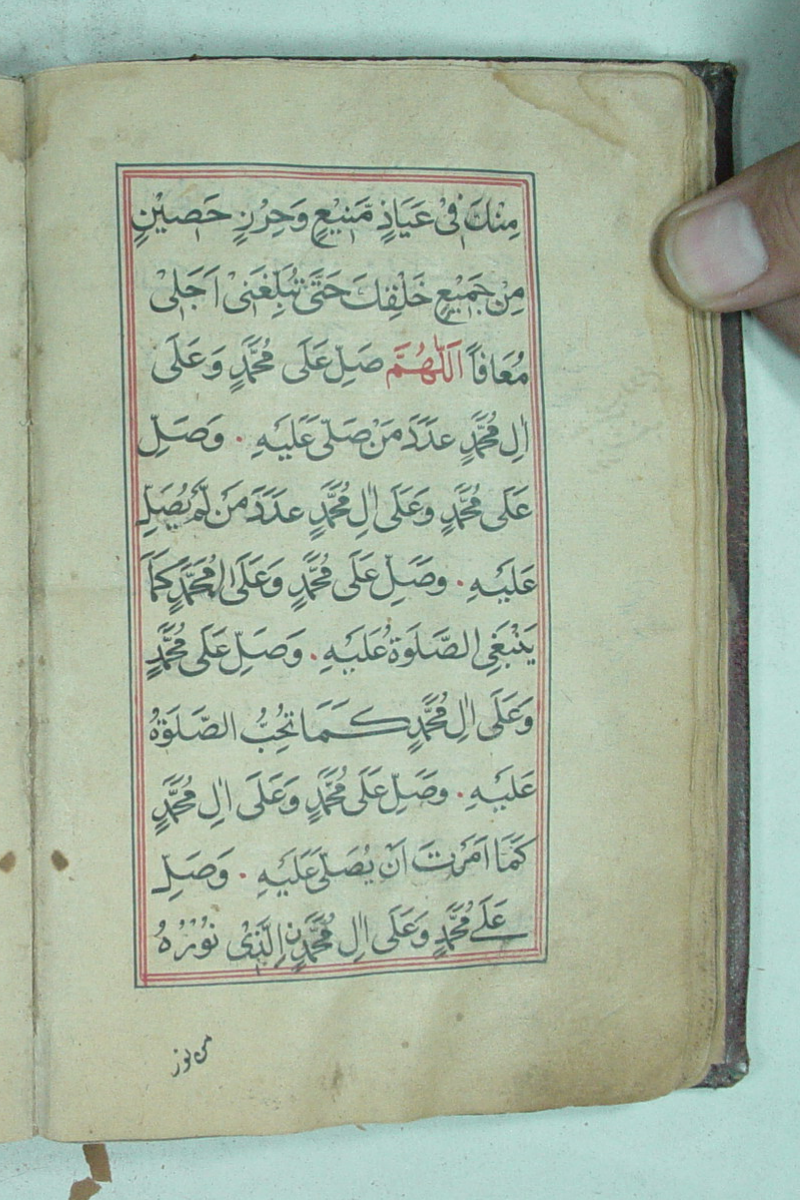 مِنْكَ فِىْ عَيَاذٍ مَّنِيْعٍ وَحِرْزٍ حَصِيْنٍ
مِنْ جَمِيْعِ خَلْقِكَ حَتّٰى تُبَلِّغَنِىْ اَجَلِىْ
مُعَافًا اَللّٰهُمَّ صَلِّ عَلَى مُحَمَّدٍ وَعَلَى
اٰلِ مُحَمَّدٍ عَدَدَ مَنْ صَلّٰى عَلَيْهِ . وَصَلِّ
عَلَى مُحَمَّدٍ وَعَلَى اٰلِ مُحَمَّدٍ عَدَدَ مَنْ لَّمْ يُصَلِّ
عَلَيْهِ . وَصَلِّ عَلَى مُحَمَّدٍ وَعَلَى اٰلِ مُحَمَّدٍ كَمَا
يَنْبَغِى الصَّلٰوةُ عَلَيْهِ . وَصَلِّ عَلَى مُحَمَّدٍ
وَعَلَى اٰلِ مُحَمَّدٍ كَمَا تُحِبُّ الصَّلٰوةُ
عَلَيْهِ . وَصَلِّ عَلَى مُحَمَّدٍ وَعَلَى اٰلِ مُحَمَّدٍ
كَمَا اَمَرْتَ اَنْ يُصَلّٰى عَلَيْهِ . وَصَلِّ
عَلٰے مُحَمَّدٍ وَعَلَى اٰلِ مُحَمَّدِ نِ الَّذِىْ نُوْرُهُ
من نور